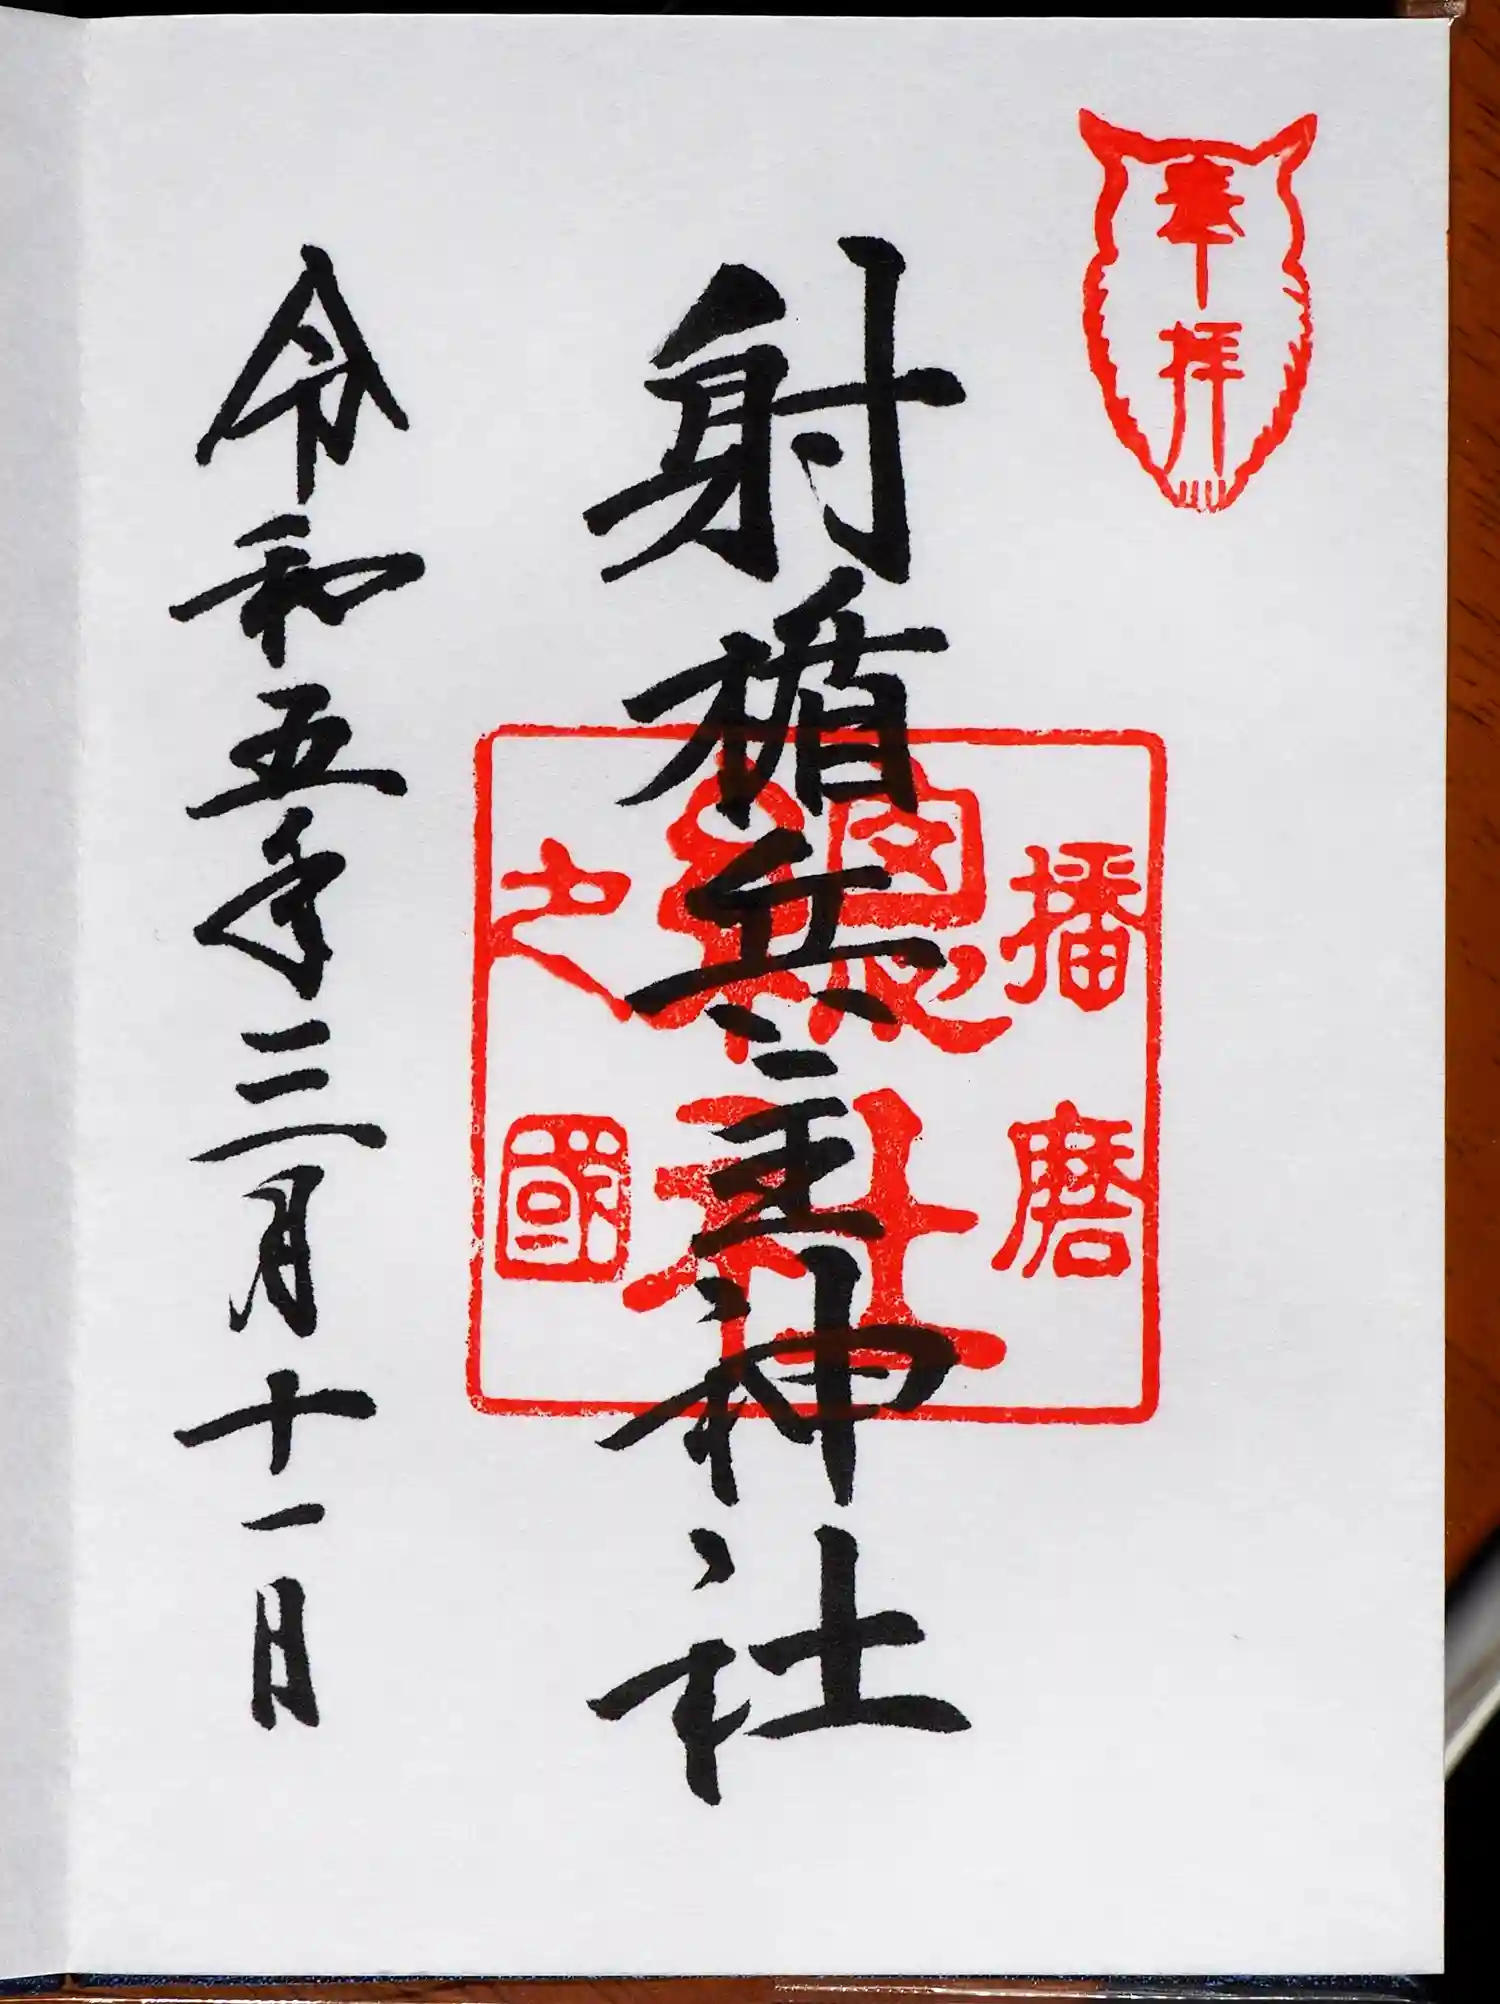 奉拝
射楯兵主神社
播磨
総社
之国
令和五年三月十一日